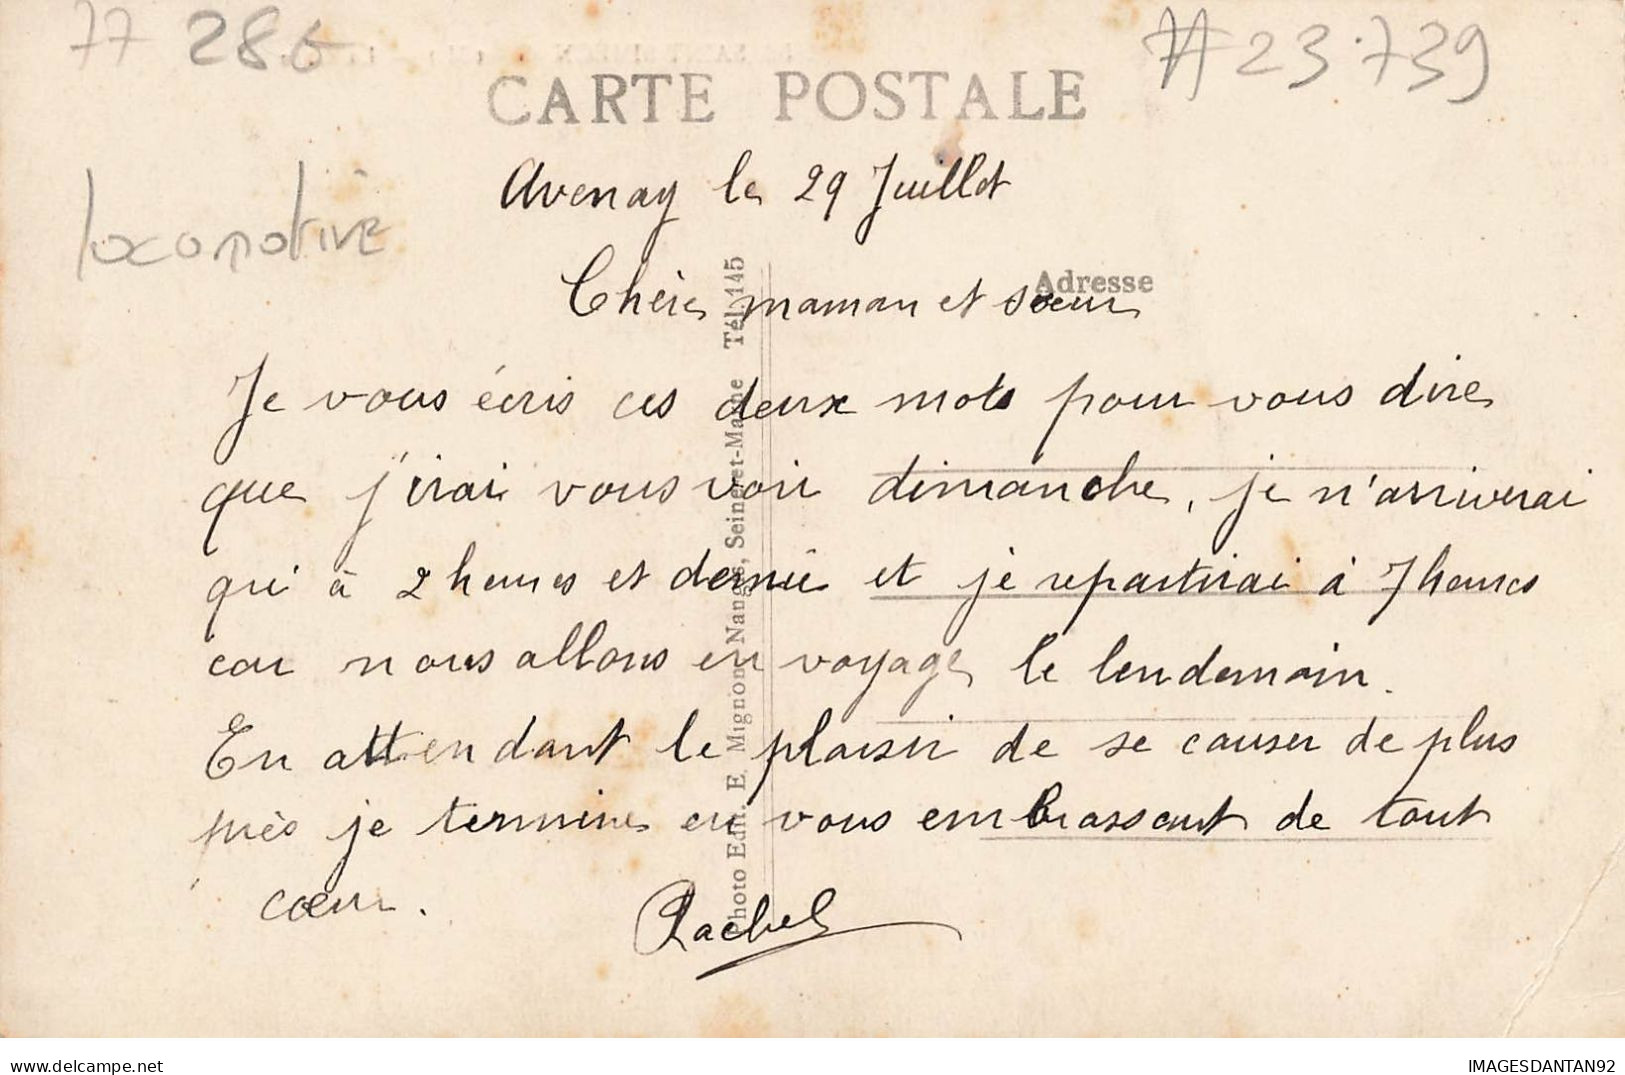 77 286
#23.739
CARTE POSTALE
locomotive
Avenay le 29 Juillet
Adresse
Chère maman et sœur
Je vous écris ces deux mots pour vous dire
que j'irai vous voir dimanche, je n'arriverai
qu'à 2 heures et demie et je repartirai à 7 heures
car nous allons en voyage le lendemain.
En attendant le plaisir de se causer de plus
près je termine en vous embrassant de tout
cœur.
Rachel
Photo Edit. E. Mignon, Nangis, Seine-et-Marne Tél. 145
delcampe.net
IMAGESDANTAN92